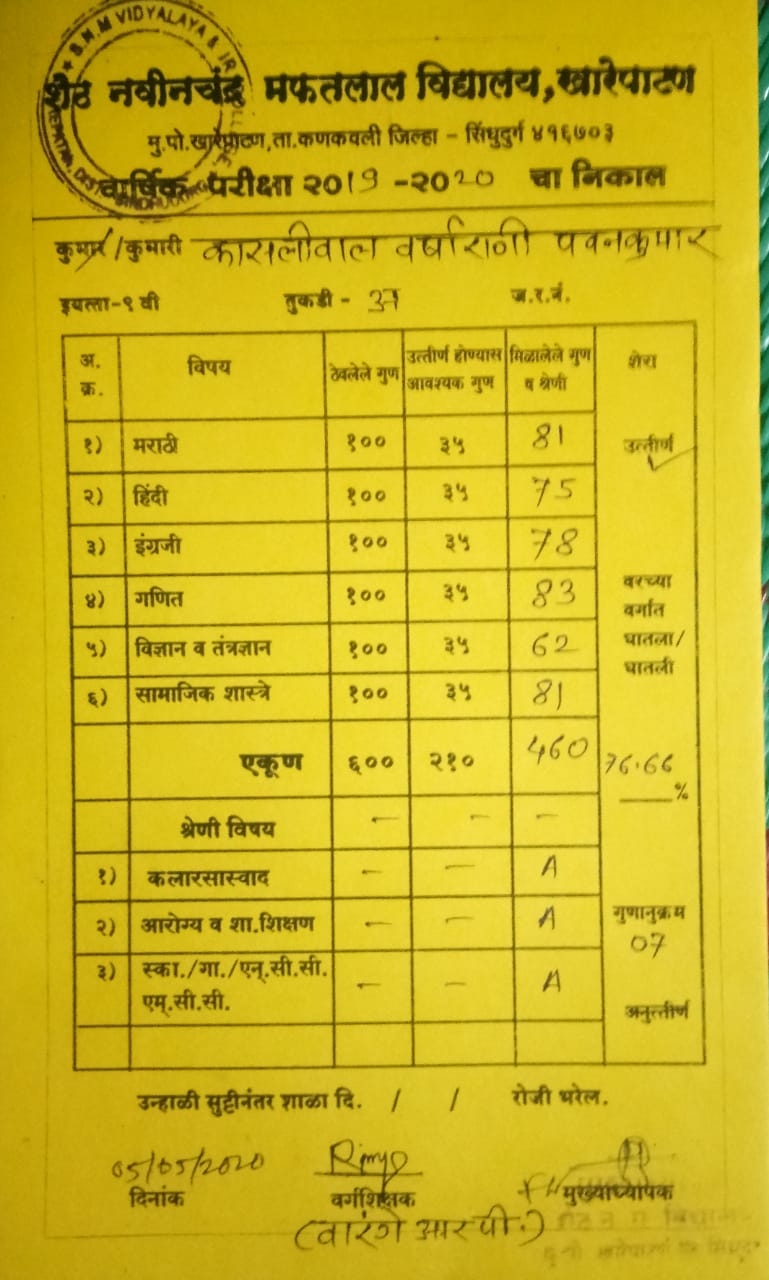 S.N.M VIDYALAYA & JR
शेठ नवीनचंद्र मफतलाल विद्यालय, खारेपाटण
मु.पो.खारेपाटण,ता.कणकवली जिल्हा - सिंधुदुर्ग ४१६७०३
वार्षिक परीक्षा २०19 -२०20 चा निकाल
कुमार/कुमारी कासलीवाल वर्षाराणी पवनकुमार
इयत्ता-९ वी तुकडी - अ ज.र.नं.
अ. क्र. विषय ठेवलेले गुण उत्तीर्ण होण्यास आवश्यक गुण मिळालेले गुण व श्रेणी शेरा
१) मराठी १०० ३५ 81 उत्तीर्ण
२) हिंदी १०० ३५ 75
३) इंग्रजी १०० ३५ 78
४) गणित १०० ३५ 83 वरच्या वर्गात
५) विज्ञान व तंत्रज्ञान १०० ३५ 62 घातला/ घातली
६) सामाजिक शास्त्रे १०० ३५ 81
एकूण ६०० २१० 460 76.66 %
श्रेणी विषय - - -
१) कलारसास्वाद - - A
२) आरोग्य व शा.शिक्षण - - A गुणानुक्रम 07
३) स्का./गा./एन्.सी.सी. एम्.सी.सी. - - A अनुत्तीर्ण
उन्हाळी सुट्टीनंतर शाळा दि. / / रोजी भरेल.
05/05/2020
दिनांक वर्गशिक्षक मुख्याध्यापक
(वारंगे आर.पी.)